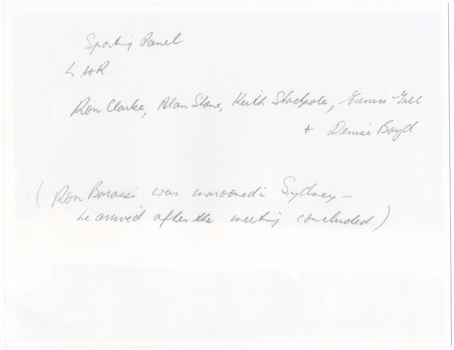 Sporting Panel
L to R
Ron Clarke, Alan Stone, Keith Stackpole, Eunice Gill
+ Denise Boyd
(Ron Barassi was marooned in Sydney –
he arrived after the meeting concluded)